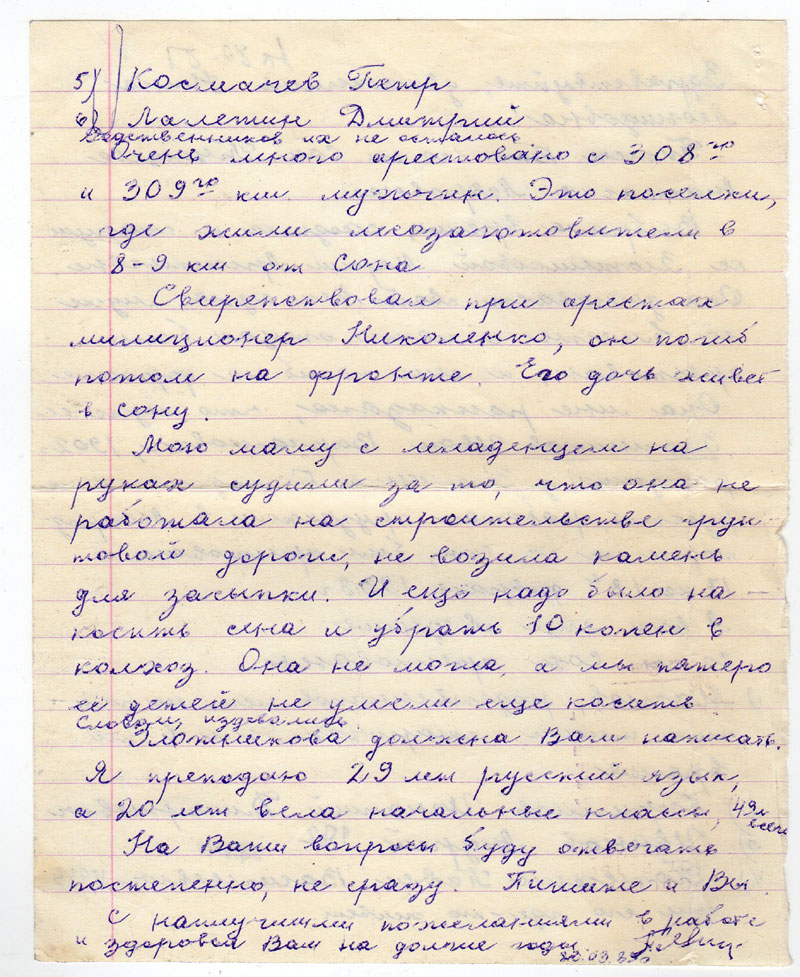 5) Космачев Петр
6) Лалетин Дмитрий
Родственников их не осталось
Очень много арестовано с 308го
и 309го км. мужчин. Это поселки,
где жили лесозаготовители в
8-9 км от Сона
Свирепствовал при арестах
милиционер Николенко, он погиб
потом на фронте. Его дочь живет
в Сону.
Мою маму с младенцем на
руках судили за то, что она не
работала на строительстве грун-
товой дороги, не возила камень
для засыпки. И еще надо было на-
косить сена и убрать 10 копен в
колхоз. Она не могла, а мы пятеро
её детей не умели еще косить
Словом, издевались.
Злотникова должна Вам написать.
Я преподаю 29 лет русский язык,
а 20 лет вела начальные классы, 49 л
всего
На Ваши вопросы буду отвечать
постепенно, не сразу. Пишите и Вы.
С наилучшими пожеланиями в работе
и здоровья Вам на долгие годы
.03.89г